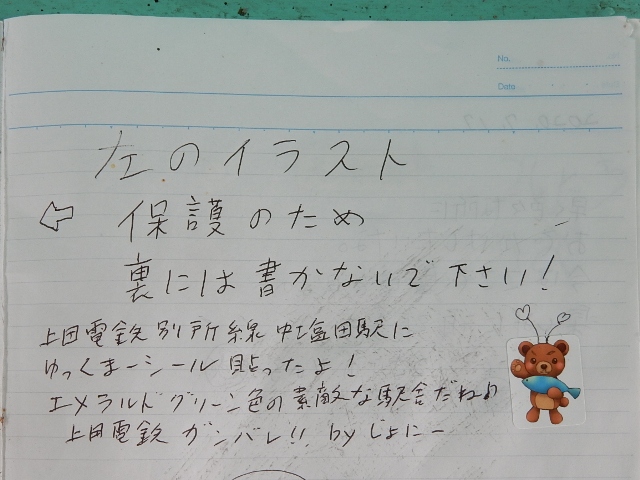 No.
Date
左のイラスト
保護のため
裏には書かないで下さい!
上田電鉄別所線 中塩田駅に
ゆっくまーシール貼ったよ!
エメラルドグリーン色の素敵な駅舎だねぁ
上田電鉄 ガンバレ!! by じょにー